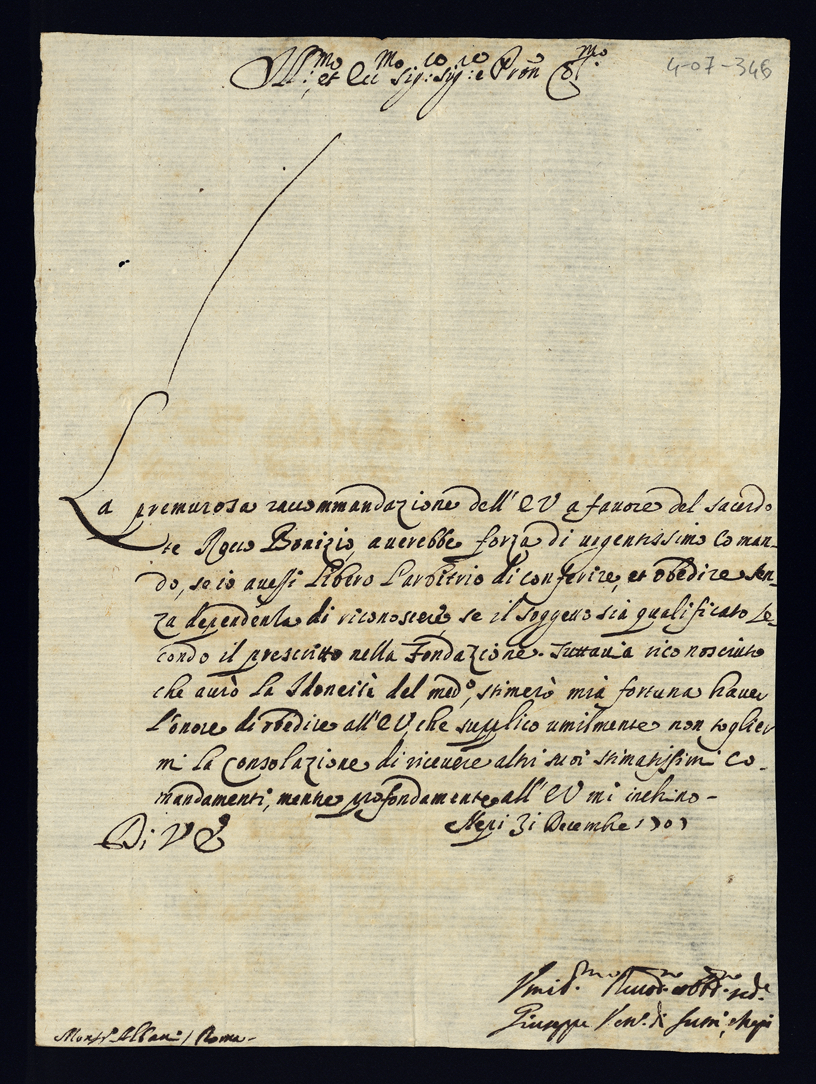 Ill.mo et Ecc.mo Sig.re Sig.re e Pron Col.mo
4-07-346
La premurosa raccommandazione dell' EV a favore del sacerdo
te Rocco Bonizio, averebbe forza di urgentissimo Coman-
do, se io avessi libero l'arbitrio di conferire, et obedire sen-
za dependenza di riconoscere, se il soggetto sia qualificato se-
condo il prescritto nella Fondazione. Tuttavia riconosciuto
che avrò la Idoneità del med.o, stimerò mia fortuna haver
l'onore di obedire all' EV, che supplico umilmente non toglier
mi la consolazione di ricevere altri suoi stimatissimi Co-
mandamenti, mentre profondamente all' EV mi inchino-
Nepi 31 Decembre 1707
Di V E
Umil.mo Obb.mo
Giuseppe Vesc.o di Sutri, e Nepi
Mons.r Albani / Roma-